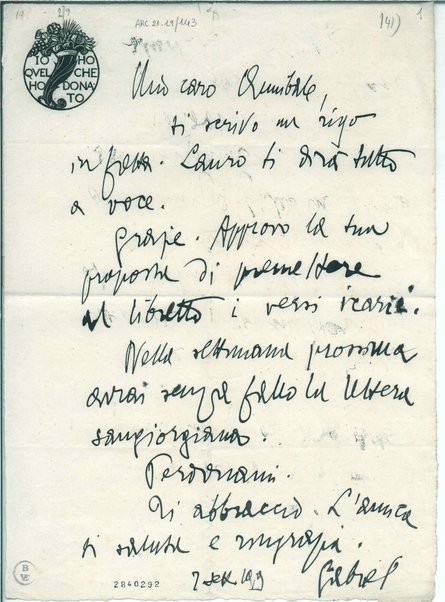 19 2/9 ARC 21.19/143 (41) 1
IO HO
QVEL CHE
HO DONA
TO
Mio caro Annibale,
ti scrivo un rigo
in fretta. Lauro ti dirà tutto
a voce.
Grazie. Approvo la tua
proposta di premettere
al libretto i versi icarii.
Nella settimana prossima
avrai senza fallo la lettera
sangiorgiana.
Perdonami.
Ti abbraccio. L'amica
ti saluta e ringrazia.
2840292
2 sett. 1919
Gabriel
BVE